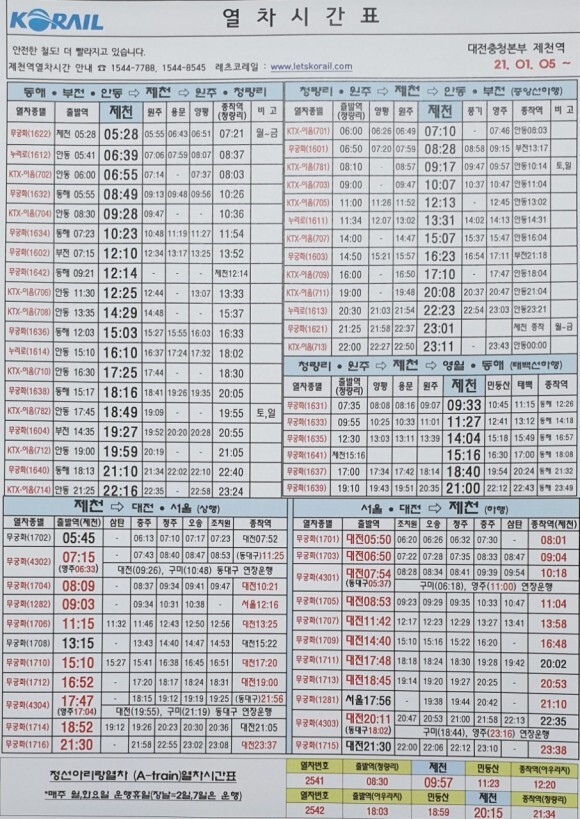 KORAIL
열차시간표
안전한 철도! 더 빨라지고 있습니다.
제천역열차시간 안내 ☎ 1544-7788, 1544-8545 레츠코레일 : www.letskorail.com
대전충청본부 제천역
21. 01. 05 ~
동해 • 부전 • 안동 ⇨ 제천 ⇨ 원주 • 청량리
열차종별 출발역 제천 원주 용문 양평 종착역(청량리) 비 고
무궁화(1622) 제천 05:28 05:28 05:55 06:43 06:51 07:21 월~금
누리로(1612) 안동 05:41 06:39 07:06 07:59 08:07 08:37
KTX-이음(702) 안동 06:00 06:55 07:14 - 07:37 08:03
무궁화(1632) 동해 05:55 08:49 09:13 09:48 09:56 10:26
KTX-이음(704) 안동 08:30 09:28 09:47 - - 10:36
무궁화(1634) 동해 07:23 10:23 10:48 11:19 11:27 11:54
무궁화(1602) 부전 07:15 12:10 12:34 13:17 13:25 13:52
무궁화(1642) 동해 09:21 12:14 - - - 제천12:14
KTX-이음(706) 안동 11:30 12:25 12:44 - 13:07 13:33
KTX-이음(708) 안동 13:35 14:29 14:48 - - 15:37
무궁화(1636) 동해 12:03 15:03 15:27 15:55 16:03 16:33
누리로(1614) 안동 15:10 16:10 16:37 17:24 17:32 18:02
KTX-이음(710) 안동 16:30 17:25 17:44 - - 18:30
무궁화(1638) 동해 15:17 18:16 18:41 19:26 19:35 20:05
KTX-이음(782) 안동 17:45 18:49 19:09 - - 19:55 토,일
무궁화(1604) 부전 14:35 19:27 19:52 20:20 20:28 20:55
KTX-이음(712) 안동 19:00 19:59 20:19 - - 21:05
무궁화(1640) 동해 18:13 21:10 21:34 22:02 22:10 22:40
KTX-이음(714) 안동 21:25 22:16 22:35 - 22:58 23:24
청량리 • 원주 ⇨ 제천 ⇨ 안동 • 부전 (중앙선하행)
열차종별 출발역(청량리) 양평 원주 제천 풍기 영주 종착역 비 고
KTX-이음(701) 06:00 06:26 06:49 07:10 - 07:46 안동08:03
무궁화(1601) 06:50 07:20 07:59 08:28 08:58 09:15 부전13:17
KTX-이음(781) 08:10 - 08:57 09:17 09:47 09:57 안동10:14 토,일
KTX-이음(703) 09:00 - 09:47 10:07 10:37 10:47 안동11:04
KTX-이음(705) 11:00 11:28 11:52 12:13 - 12:45 안동13:02
누리로(1611) 11:34 12:07 13:02 13:31 14:02 14:13 안동14:31
KTX-이음(707) 14:00 - 14:47 15:07 15:37 15:47 안동16:04
무궁화(1603) 14:50 15:21 15:57 16:23 16:54 17:11 부전21:18
KTX-이음(709) 16:00 - 16:50 17:10 - 17:47 안동18:04
KTX-이음(711) 19:00 - 19:48 20:08 20:37 20:47 안동21:04
누리로(1613) 20:30 21:03 21:54 22:23 22:54 23:03 안동23:21
무궁화(1621) 21:25 21:58 22:37 23:01 제천 종착 월~금
KTX-이음(713) 22:00 22:27 22:50 23:11 - 23:43 안동00:00
청량리 • 원주 ⇨ 제천 ⇨ 영월 • 동해 (태백선하행)
열차종별 출발역(청량리) 양평 용문 원주 제천 민둥산 태백 종착역
무궁화(1631) 07:35 08:08 08:16 09:07 09:33 10:45 11:15 동해 12:26
무궁화(1633) 09:55 10:25 10:33 11:01 11:27 12:41 13:12 동해 14:18
무궁화(1635) 12:30 13:03 13:11 13:39 14:04 15:18 15:49 동해 16:57
무궁화(1641) 제천15:16 - - - 15:16 16:30 17:00 동해 18:08
무궁화(1637) 17:00 17:34 17:42 18:14 18:40 19:54 20:24 동해 21:32
무궁화(1639) 19:10 19:43 19:51 20:35 21:00 22:12 22:43 동해 23:49
제천 ⇨ 대전 • 서울 (상행)
열차종별 출발역(제천) 삼탄 충주 청주 오송 조치원 종착역
무궁화(1702) 05:45 - 06:13 07:10 07:17 07:23 대전07:52
무궁화(4302) 07:15 (영주06:33) - 07:43 08:40 08:47 08:53 (동대구)11:25
대전(09:26), 구미(10:48) 동대구 연장운행
무궁화(1704) 08:09 - 08:37 09:34 09:41 09:47 대전10:21
무궁화(1282) 09:03 - 09:34 10:31 10:38 - 서울12:16
무궁화(1706) 11:15 11:32 11:46 12:43 12:50 12:56 대전13:25
무궁화(1708) 13:15 - 13:43 14:40 14:47 14:53 대전15:22
무궁화(1710) 15:10 15:27 15:41 16:38 16:45 16:51 대전17:20
무궁화(1712) 16:52 - 17:20 18:17 18:24 18:31 대전19:00
무궁화(4304) 17:47 (영주17:04) - 18:15 19:12 19:19 19:25 (동대구)21:56
대전(19:55), 구미(21:19) 동대구 연장운행
무궁화(1714) 18:52 19:12 19:26 20:23 20:30 20:36 대전21:05
무궁화(1716) 21:30 - 21:58 22:55 23:02 23:08 대전23:37
서울 • 대전 ⇨ 제천 (하행)
열차종별 출발역 조치원 오송 청주 충주 삼탄 종착역(제천)
무궁화(1701) 대전05:50 06:20 06:26 06:32 07:30 - 08:01
무궁화(1703) 대전06:50 07:22 07:28 07:35 08:33 08:47 09:04
무궁화(4301) 대전07:54 (동대구05:37) 08:28 08:34 08:41 09:39 09:54 10:18
구미(06:18), 영주(11:00) 연장운행
무궁화(1705) 대전08:53 09:23 09:29 09:35 10:33 10:47 11:04
무궁화(1707) 대전11:42 12:17 12:23 12:29 13:27 13:41 13:58
무궁화(1709) 대전14:40 15:10 15:16 15:22 16:20 - 16:48
무궁화(1711) 대전17:48 18:18 18:24 18:30 19:28 19:42 20:02
무궁화(1713) 대전18:45 19:14 19:20 19:27 20:25 - 20:53
무궁화(1281) 서울17:56 - 19:38 19:44 20:42 - 21:10
무궁화(4303) 대전20:11 (동대구18:02) 20:47 20:53 21:00 21:58 22:13 22:35
구미(18:44), 영주(23:16) 연장운행
무궁화(1715) 대전21:30 22:00 22:06 22:12 23:10 - 23:38
정선아리랑열차 (A-train)열차시간표
*매주 월,화요일 운행휴일(장날=2일,7일은 운행)
열차번호 출발역(청량리) 제천 민둥산 종착역(아우라지)
2541 08:30 09:57 11:23 12:20
열차번호 출발역(아우라지) 민둥산 제천 종착역(청량리)
2542 18:03 18:59 20:15 21:34